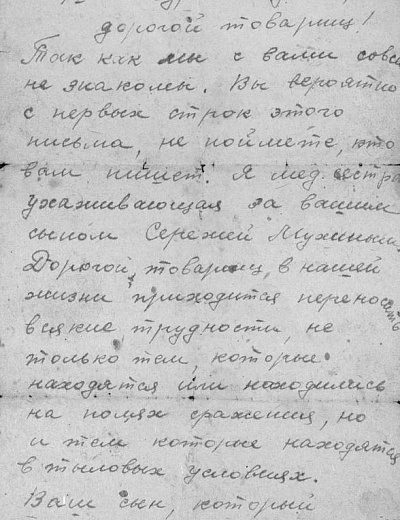 дорогой товарищ!
Так как мы с вами совсем
не знакомы. Вы вероятно
с первых строк этого
письма, не поймете, кто
вам пишет. Я мед. сестра
ухаживающая за вашим
сыном Сережей Мухиным.
Дорогой, товарищ, в нашей
жизни приходится переносить
всякие трудности, не
только тем, которые
находятся или находились
на полях сражения, но
и тем которые находятся
в тыловых условиях.
Ваш сын, который